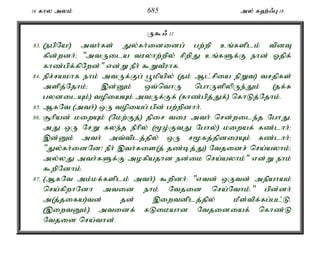 16 கால அலம் 685 அல் கஹ்ஃபு 18
ருகூஃ 11
83. (நபியே) அவர்கள் துல்கர்னைனைப் பற்றி உங்களிடம் வினவு
கின்றனர்; "அவருடைய வரலாற்றில் சிறிது உங்களுக்கு நான் ஓதிக்
காண்பிக்கிறேன்" என்று நீர் கூறுவீராக.
84. நிச்சயமாக நாம் அவருக்குப் பூமியில் (தம் ஆட்சியை நிறுவ) வசதிகள்
அளித்தோம்; இன்னும் ஒவ்வொரு பொருளிலிருந்தும் (தக்க
பலனடையும்) வழியையும் அவருக்குக் (காண்பித்துக்) கொடுத்தோம்.
85. ஆகவே (அவர்) ஒரு வழியைப் பின் பற்றினார்.
86. சூரியன் மறையும் (மேற்குத்) திசை வரை அவர் சென்றடைந்த போது,
அது ஒரு சேறு கலந்த நீரில் (மூழ்குவது போல்) மறையக் கண்டார்;
இன்னும் அவர் அவ்விடத்தில் ஒரு சமூகத்தினரையும் கண்டார்;
"துல்கர்னைனே! நீர் இவர்களை(த் தண்டித்து) வேதனைச் செய்யலாம்;
அல்லது அவர்களுக்கு அழகியதான நன்மை செய்யலாம்" என்று நாம்
கூறினோம்.
87. (ஆகவே அம்மக்களிடம் அவர்) கூறினார்: "எவன் ஒருவன் அநியாயம்
செய்கிறானோ அவனை நாம் வேதனை செய்வோம்." பின்னர்
அ(த்தகைய)வன் தன் இறைவனிடத்தில் மீள்விக்கப்பட்டு,
(இறைவனும்) அவனைக் கடுமையான வேதனையைக் கொண்டு
வேதனை செய்வான்.